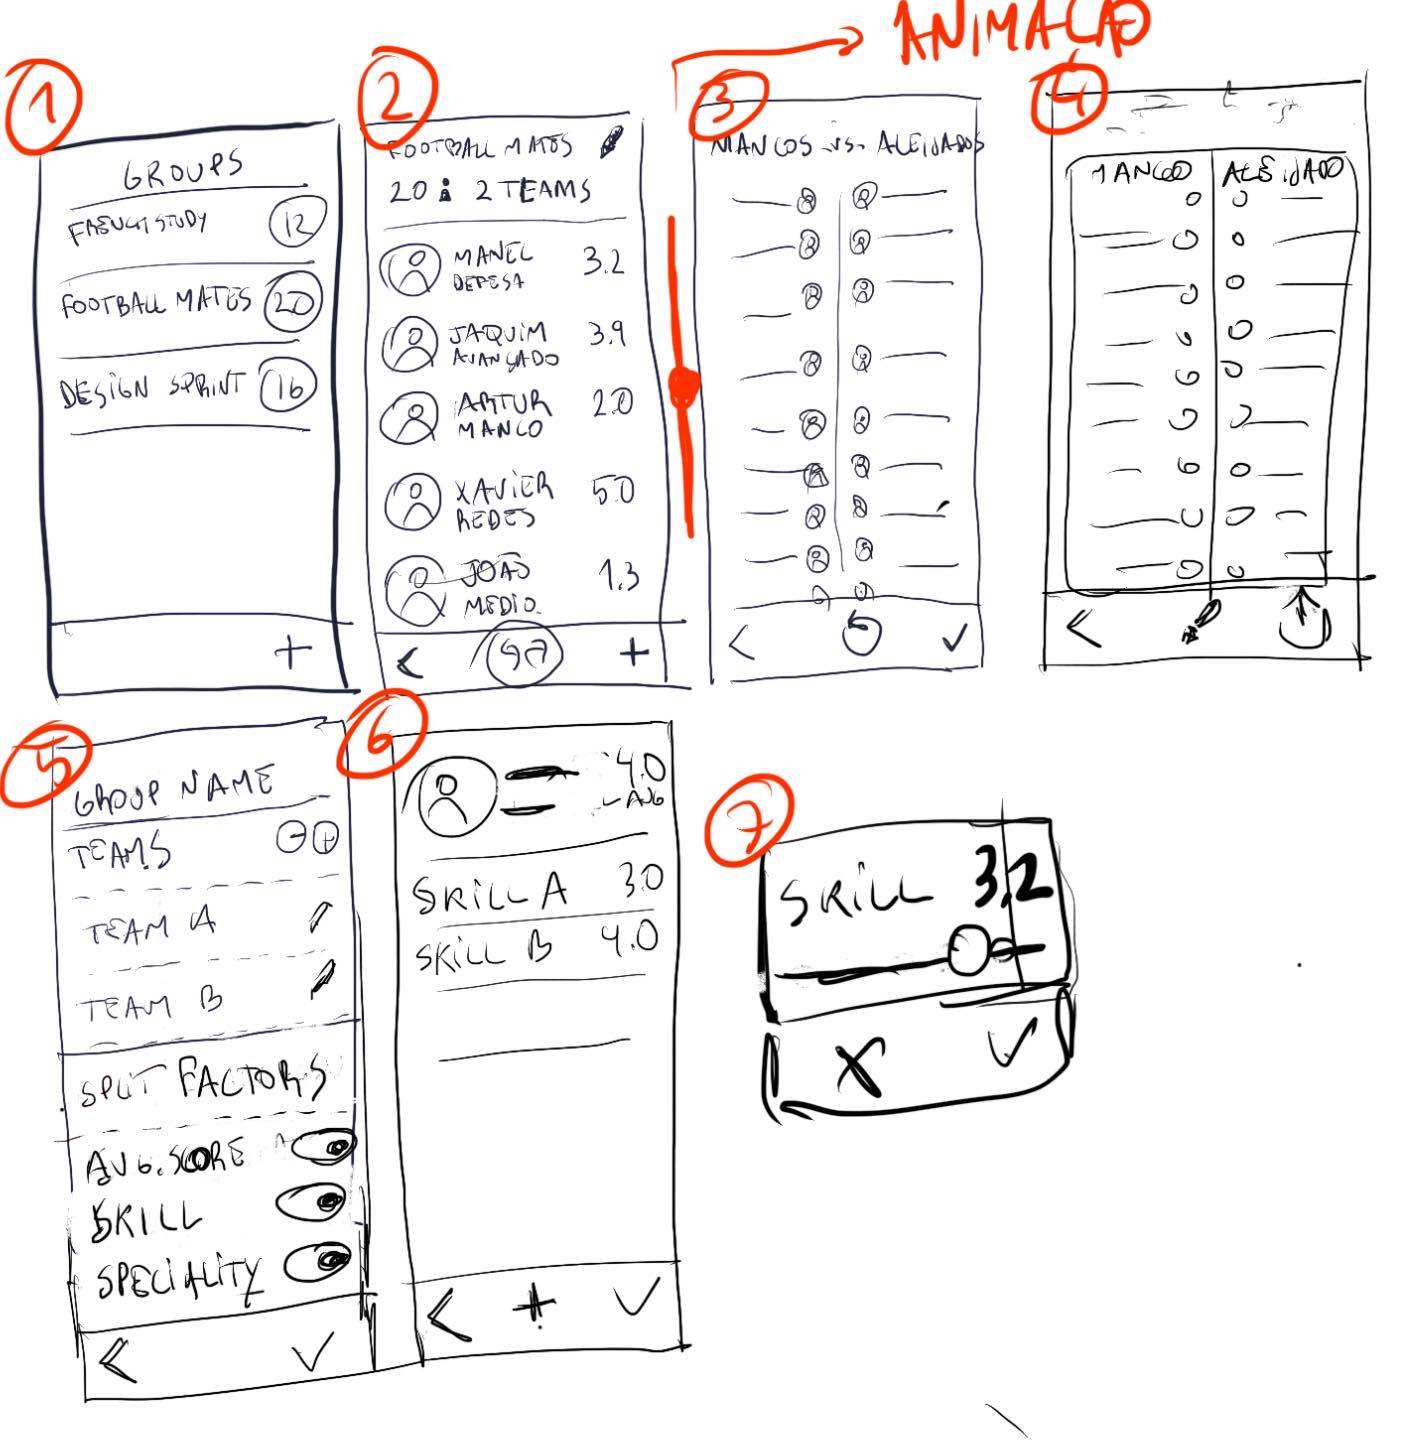 ANIMAÇÃO
1
GROUPS
FRENCH STUDY 12
FOOTBALL MATES 20
DESIGN SPRINT 16
+
2
FOOTBALL MATES
20 2 TEAMS
MANEL DEPESA 3.2
JAQUIM AVANÇADO 3.9
ARTUR MANCO 2.0
XAVIER REDES 5.0
JOÃO MEDIO. 1.3
< +
3
MANCOS .vs. ALEIJADOS
< ✓
4
MANCO ALEIJADO
<
5
GROUP NAME
TEAMS - +
TEAM A
TEAM B
SPLIT FACTORS
AVG. SCORE
SKILL
SPECIALITY
< ✓
6
4.0
AVG
SKILL A 3.0
SKILL B 4.0
< + ✓
7
SKILL 3.2
X ✓